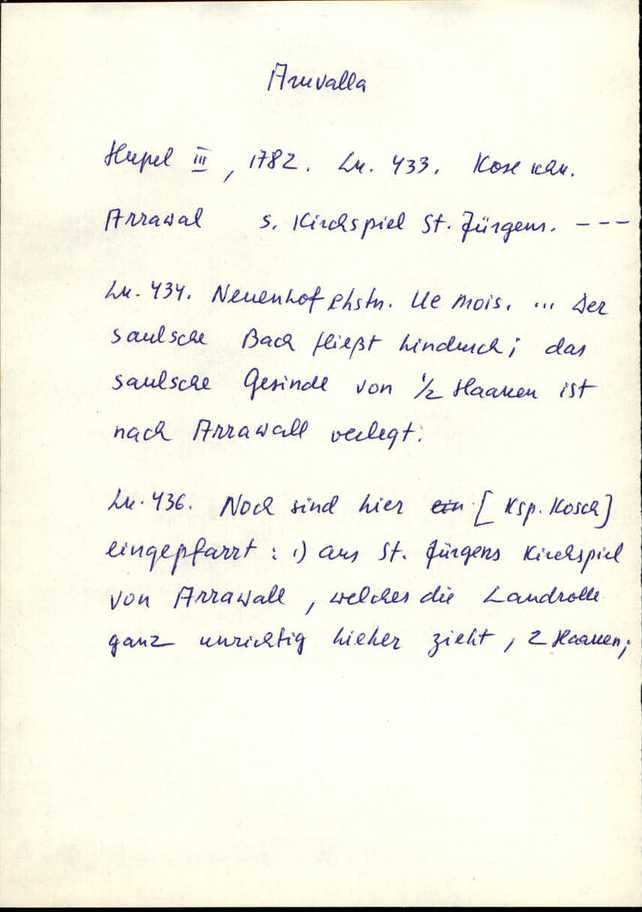 Aruvalla
Hupel III, 1782. Lk. 433. Kose khk.
Arrawal s. Kirchspiel St. Jürgens. ---
Lk. 434. Neuenhof ehstn. Ue mois. ... Der
saulsche Bach fließt hindurch; das
saulsche Gesinde von 1/2 Haaken ist
nach Arrawall verlegt.
Lk. 436. Noch sind hier ein [Ksp. Kosch]
eingepfarrt: 1) aus St. Jürgens Kirchspiel
von Arrawall, welches die Landrolle
ganz unrichtig hieher zieht, 2 Haaken;